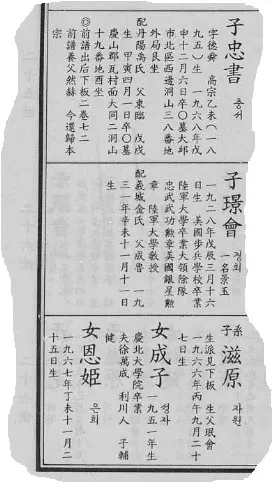 子忠書 충서
字德舜 高宗乙未(一八
九五)生 一九六八年戊
申十二月六日卒〇墓大邱
市北區西邊洞山三番地
外局艮坐
配丹陽禹氏 父東臨 戊戌
生 甲寅四月二日卒〇墓
慶山郡瓦村面大同二洞山
十九番地酉坐
◎前譜出后下板二卷七二
前譜養父然赫 今還歸本
宗
子璟會 경회
一名景玉
一九二八年戊辰三月十六
日生 美國步兵學校卒業
陸軍大學卒業大領除隊
忠武武功勳章美國銀星勳
章 陸軍大學教授
配義城金氏 父成魯 一九
三一年辛未十一月十一日
生
系子 滋原 자원
生派見下板 生父珉會
一九六六年丙午九月二十
七日生
女成子 성자
一九五一年生
慶北大學院卒業
夫徐萬成 利川人 子輔
健
女恩姬 은희
一九六七年丁未十一月二
十五日生